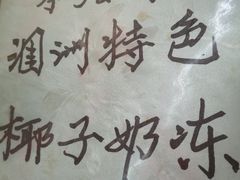 涠洲特色
椰子奶冻